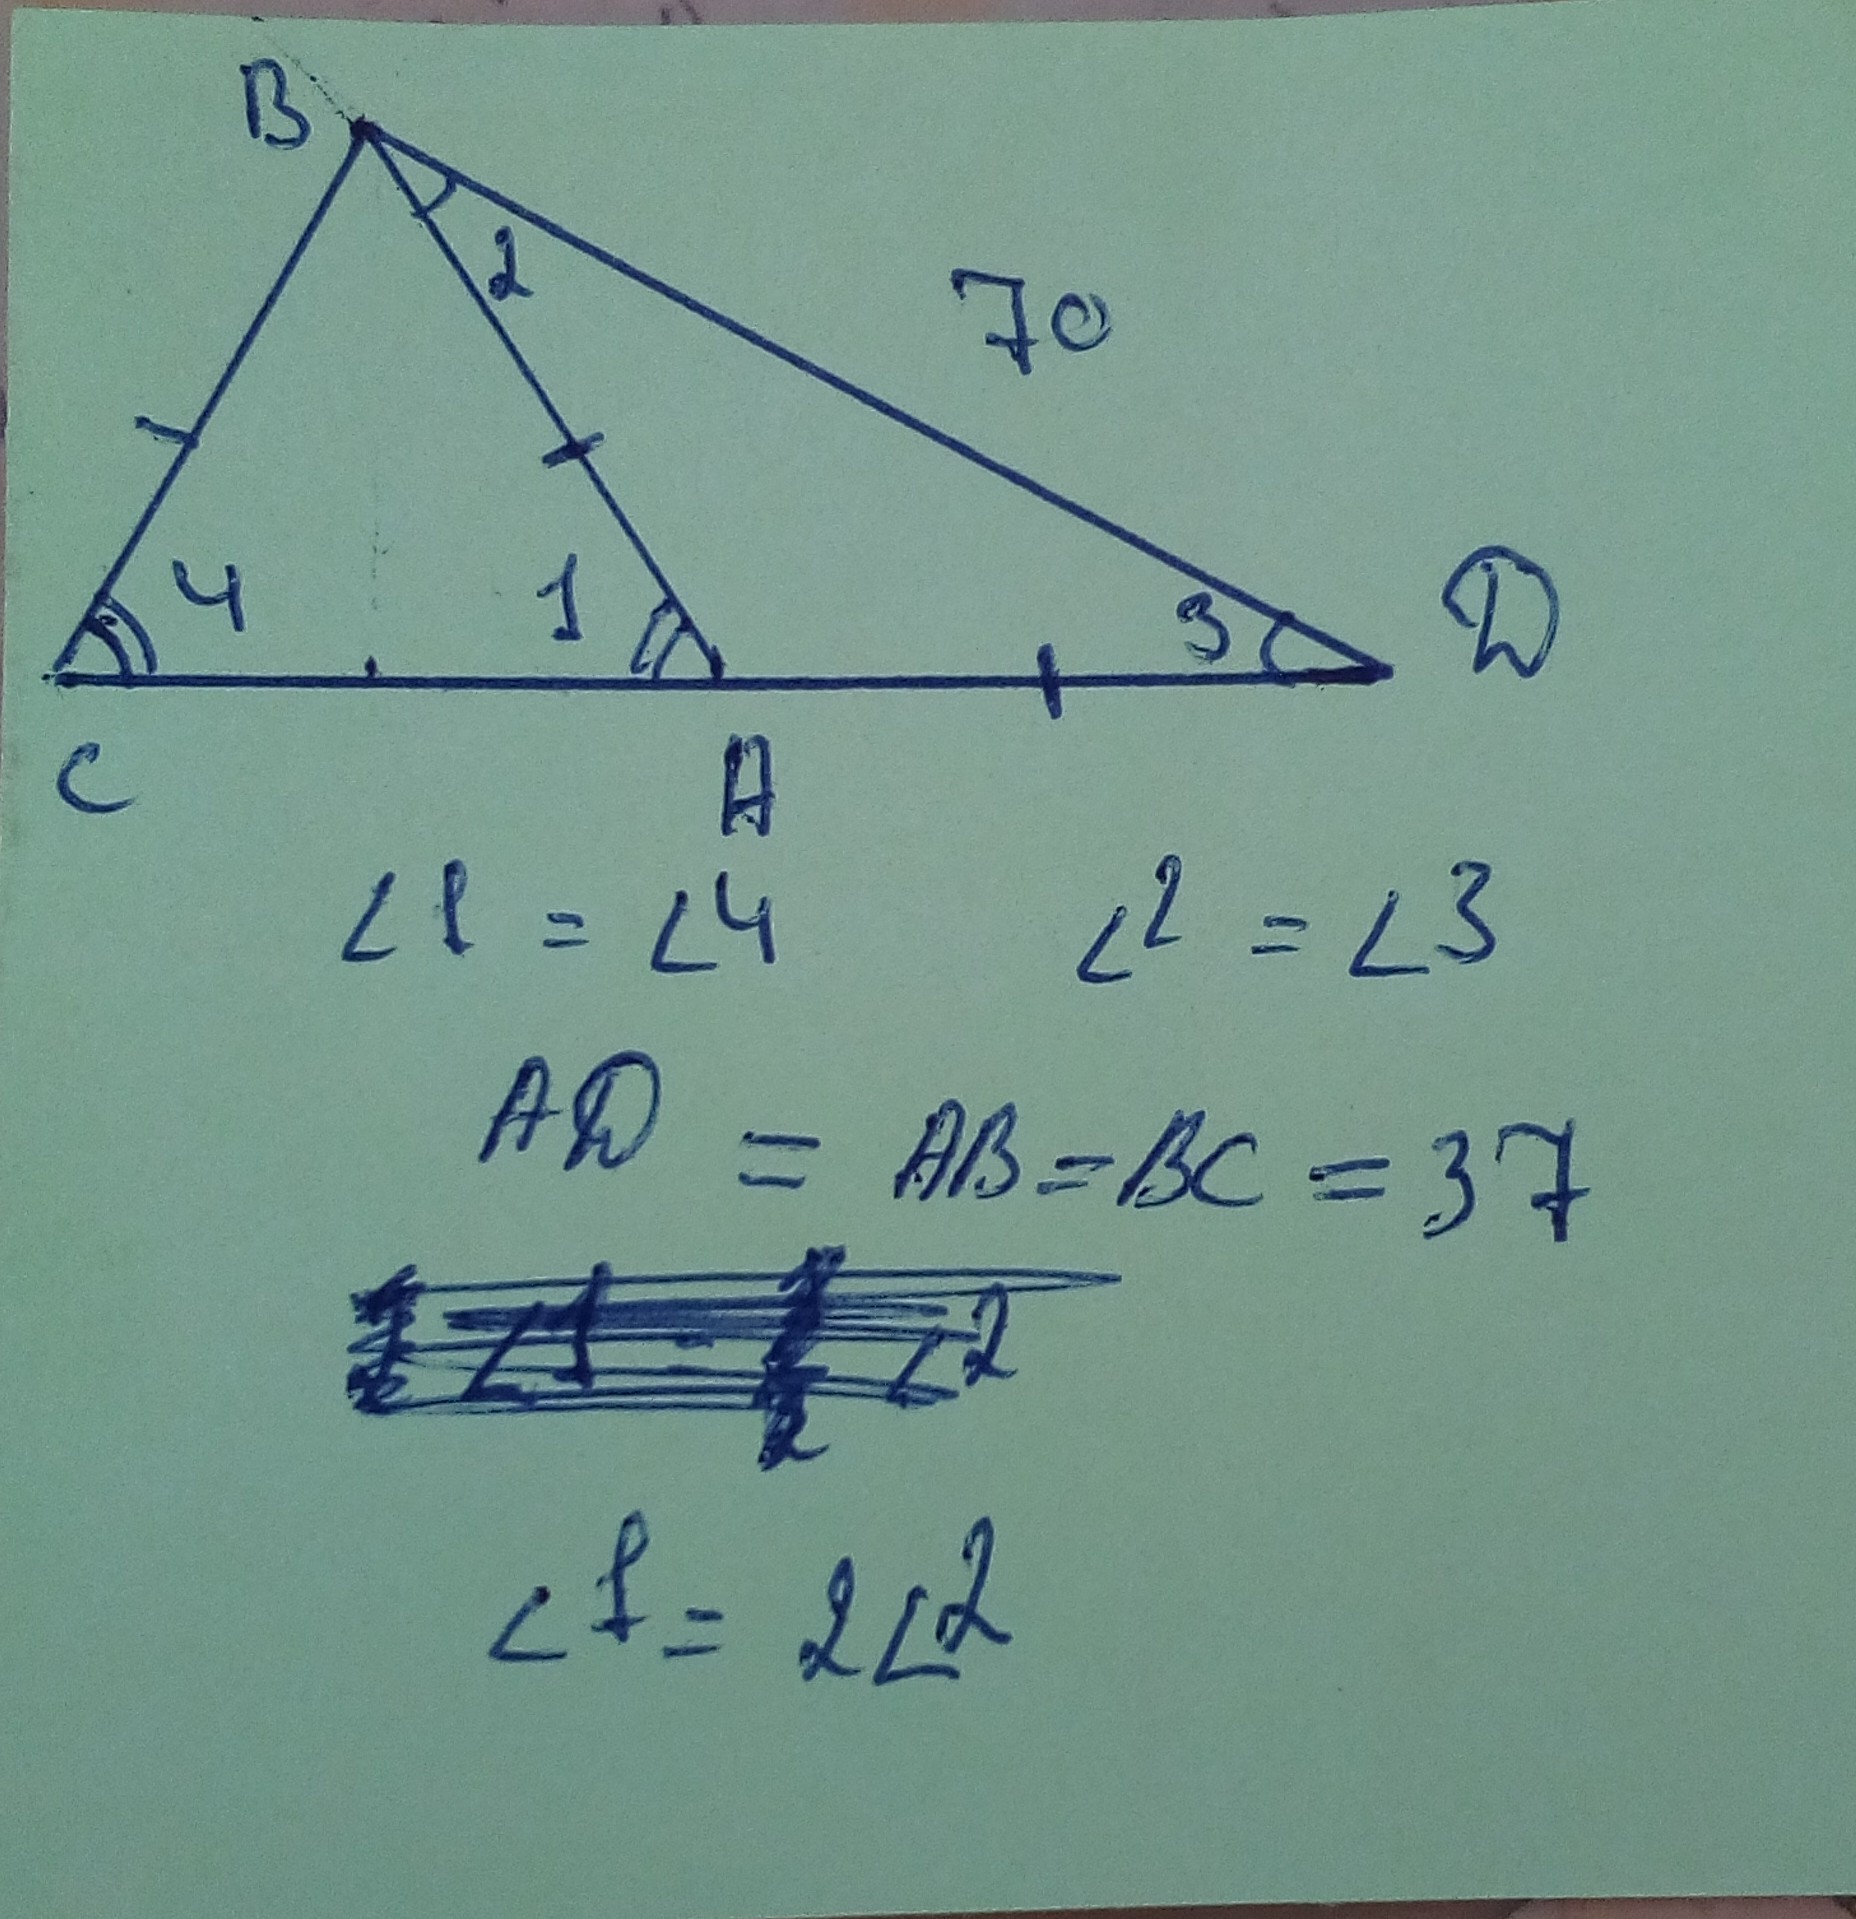 B
2
70
4
1
3
D
C
A
∠1 = ∠4 ∠2 = ∠3
AD = AB = BC = 37
∠1 = 2∠2